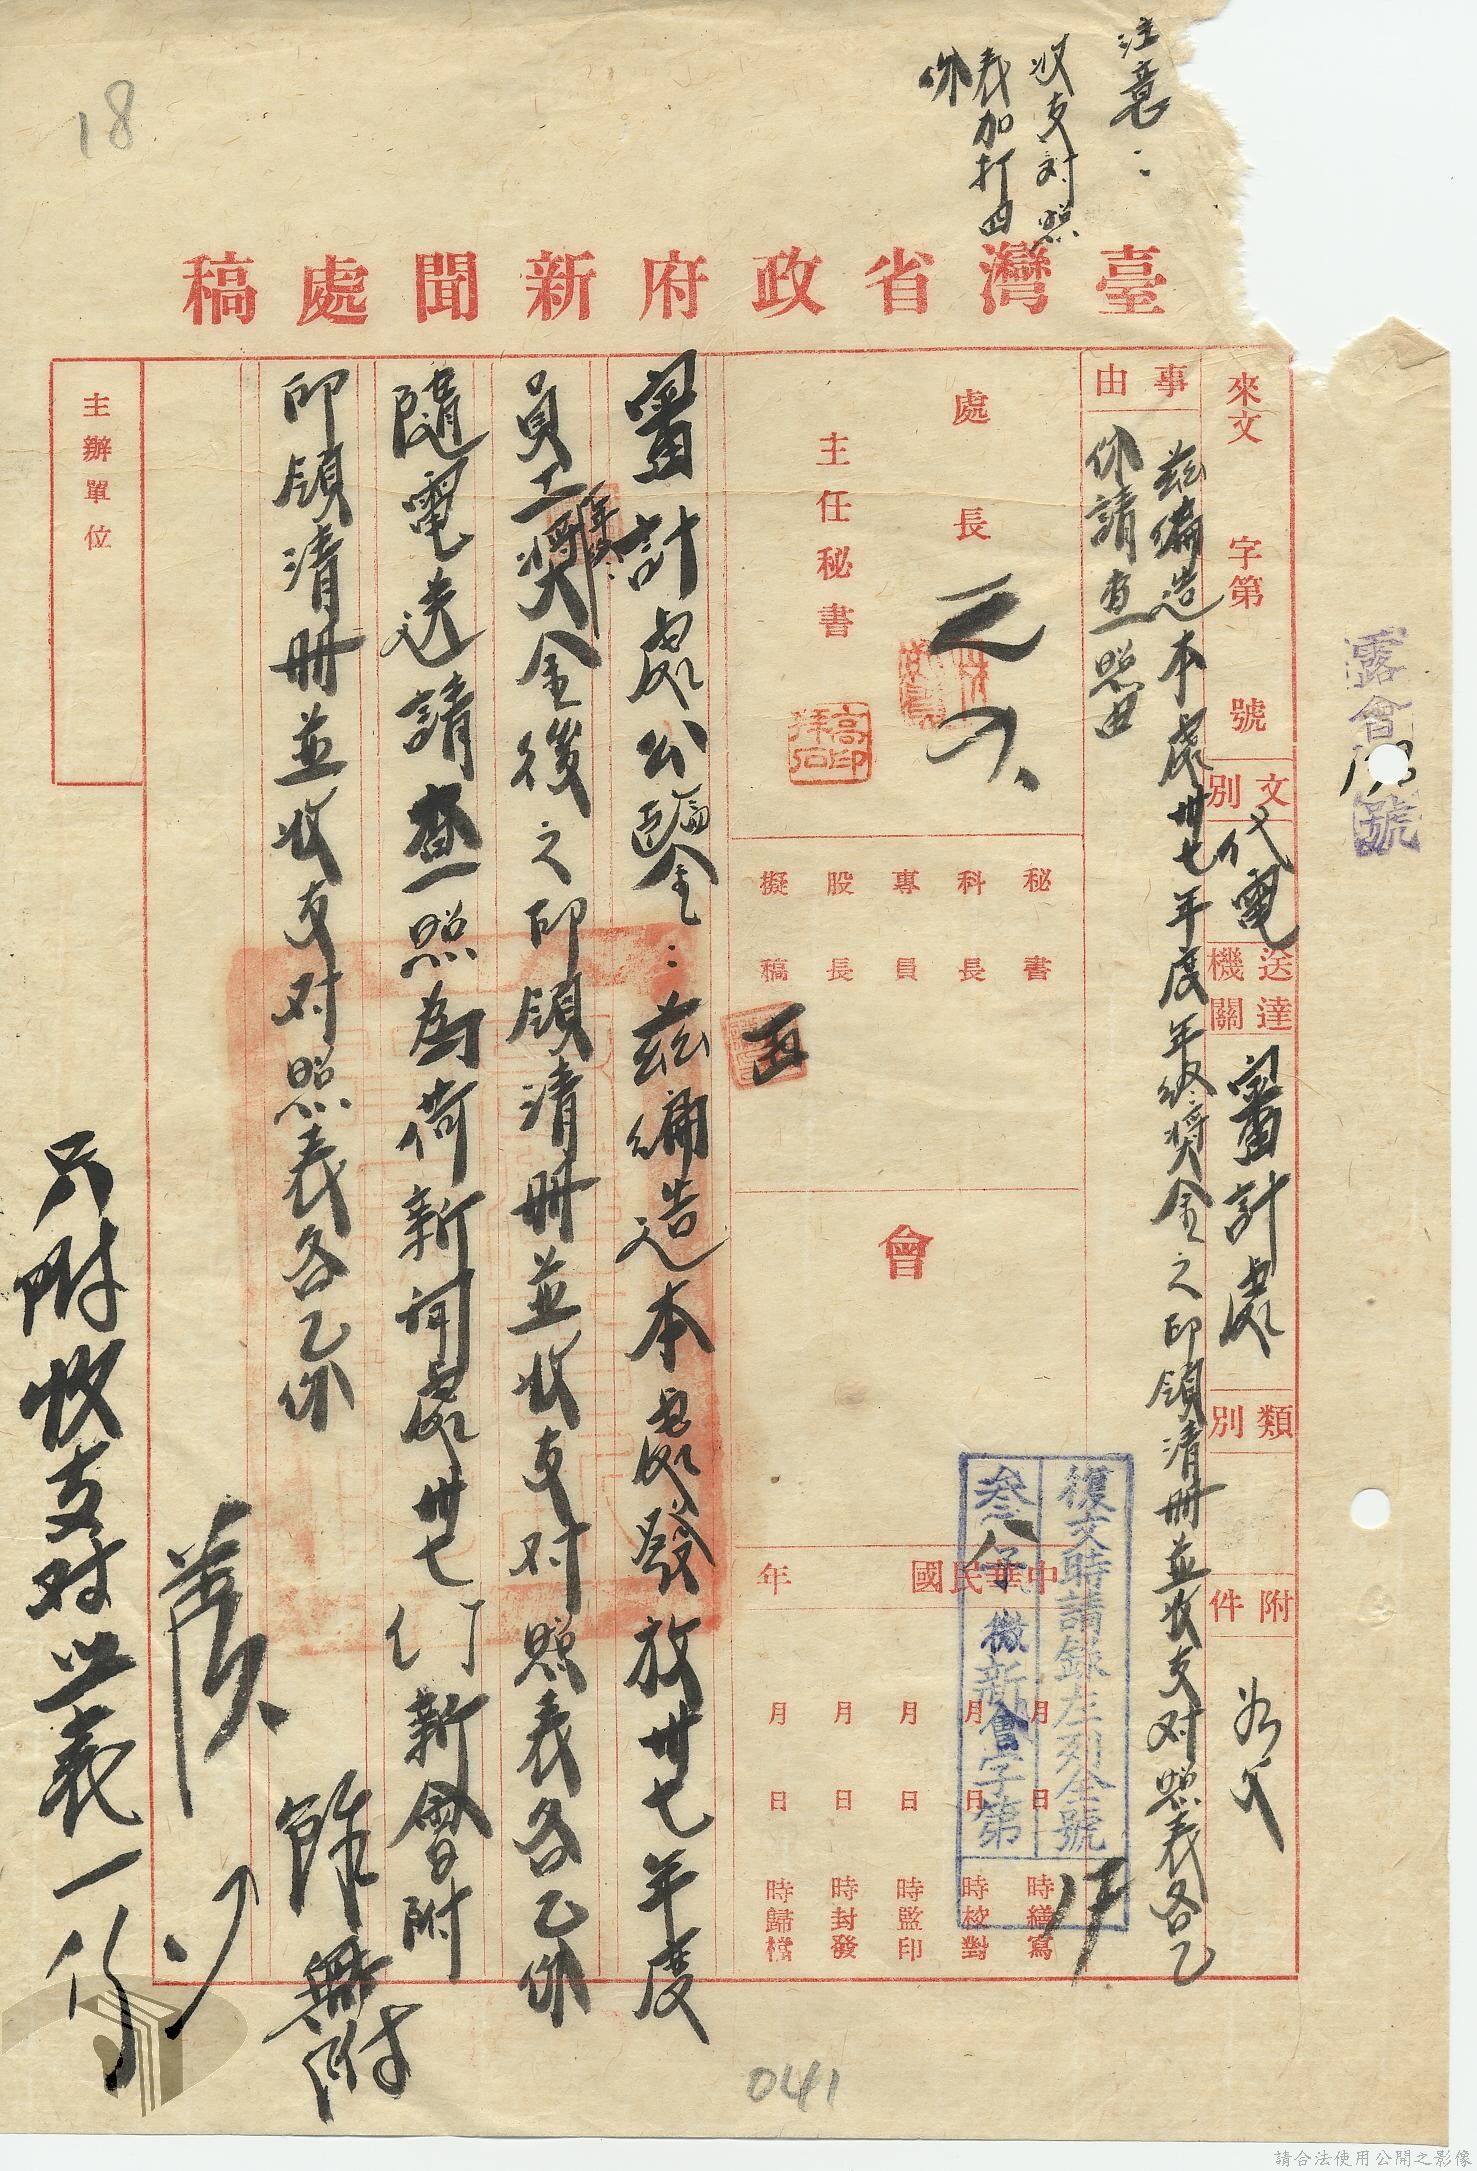 注意：
收支对照
表加打四
份
18
臺灣省政府新聞處稿
來文 字第 號
文別 代電
送達機關 審計處
類別
附件 如文
事由
茲編造本處卅七年度年終奬金之印領清册並收支对照表各乙
份請查照由
處長
主任秘書
秘書
科長
專員
股長
擬稿
會
中華民國 年
月 日 時繕寫
月 日 時校對
月 日 時監印
月 日 時封發
月 日 時歸檔
復文時請錄左列全號
叁八 新會字第 號
審計處公鑒：茲編造本處發放卅七年度
員工年終奬金後之印領清册並收支对照表各乙份
隨電送請查照為荷新聞處卅七 新會附
印領清册並收支对照表各乙份
主辦單位
只附收支对照表一份
餘無附
露會 號
041
請合法使用公開之影像